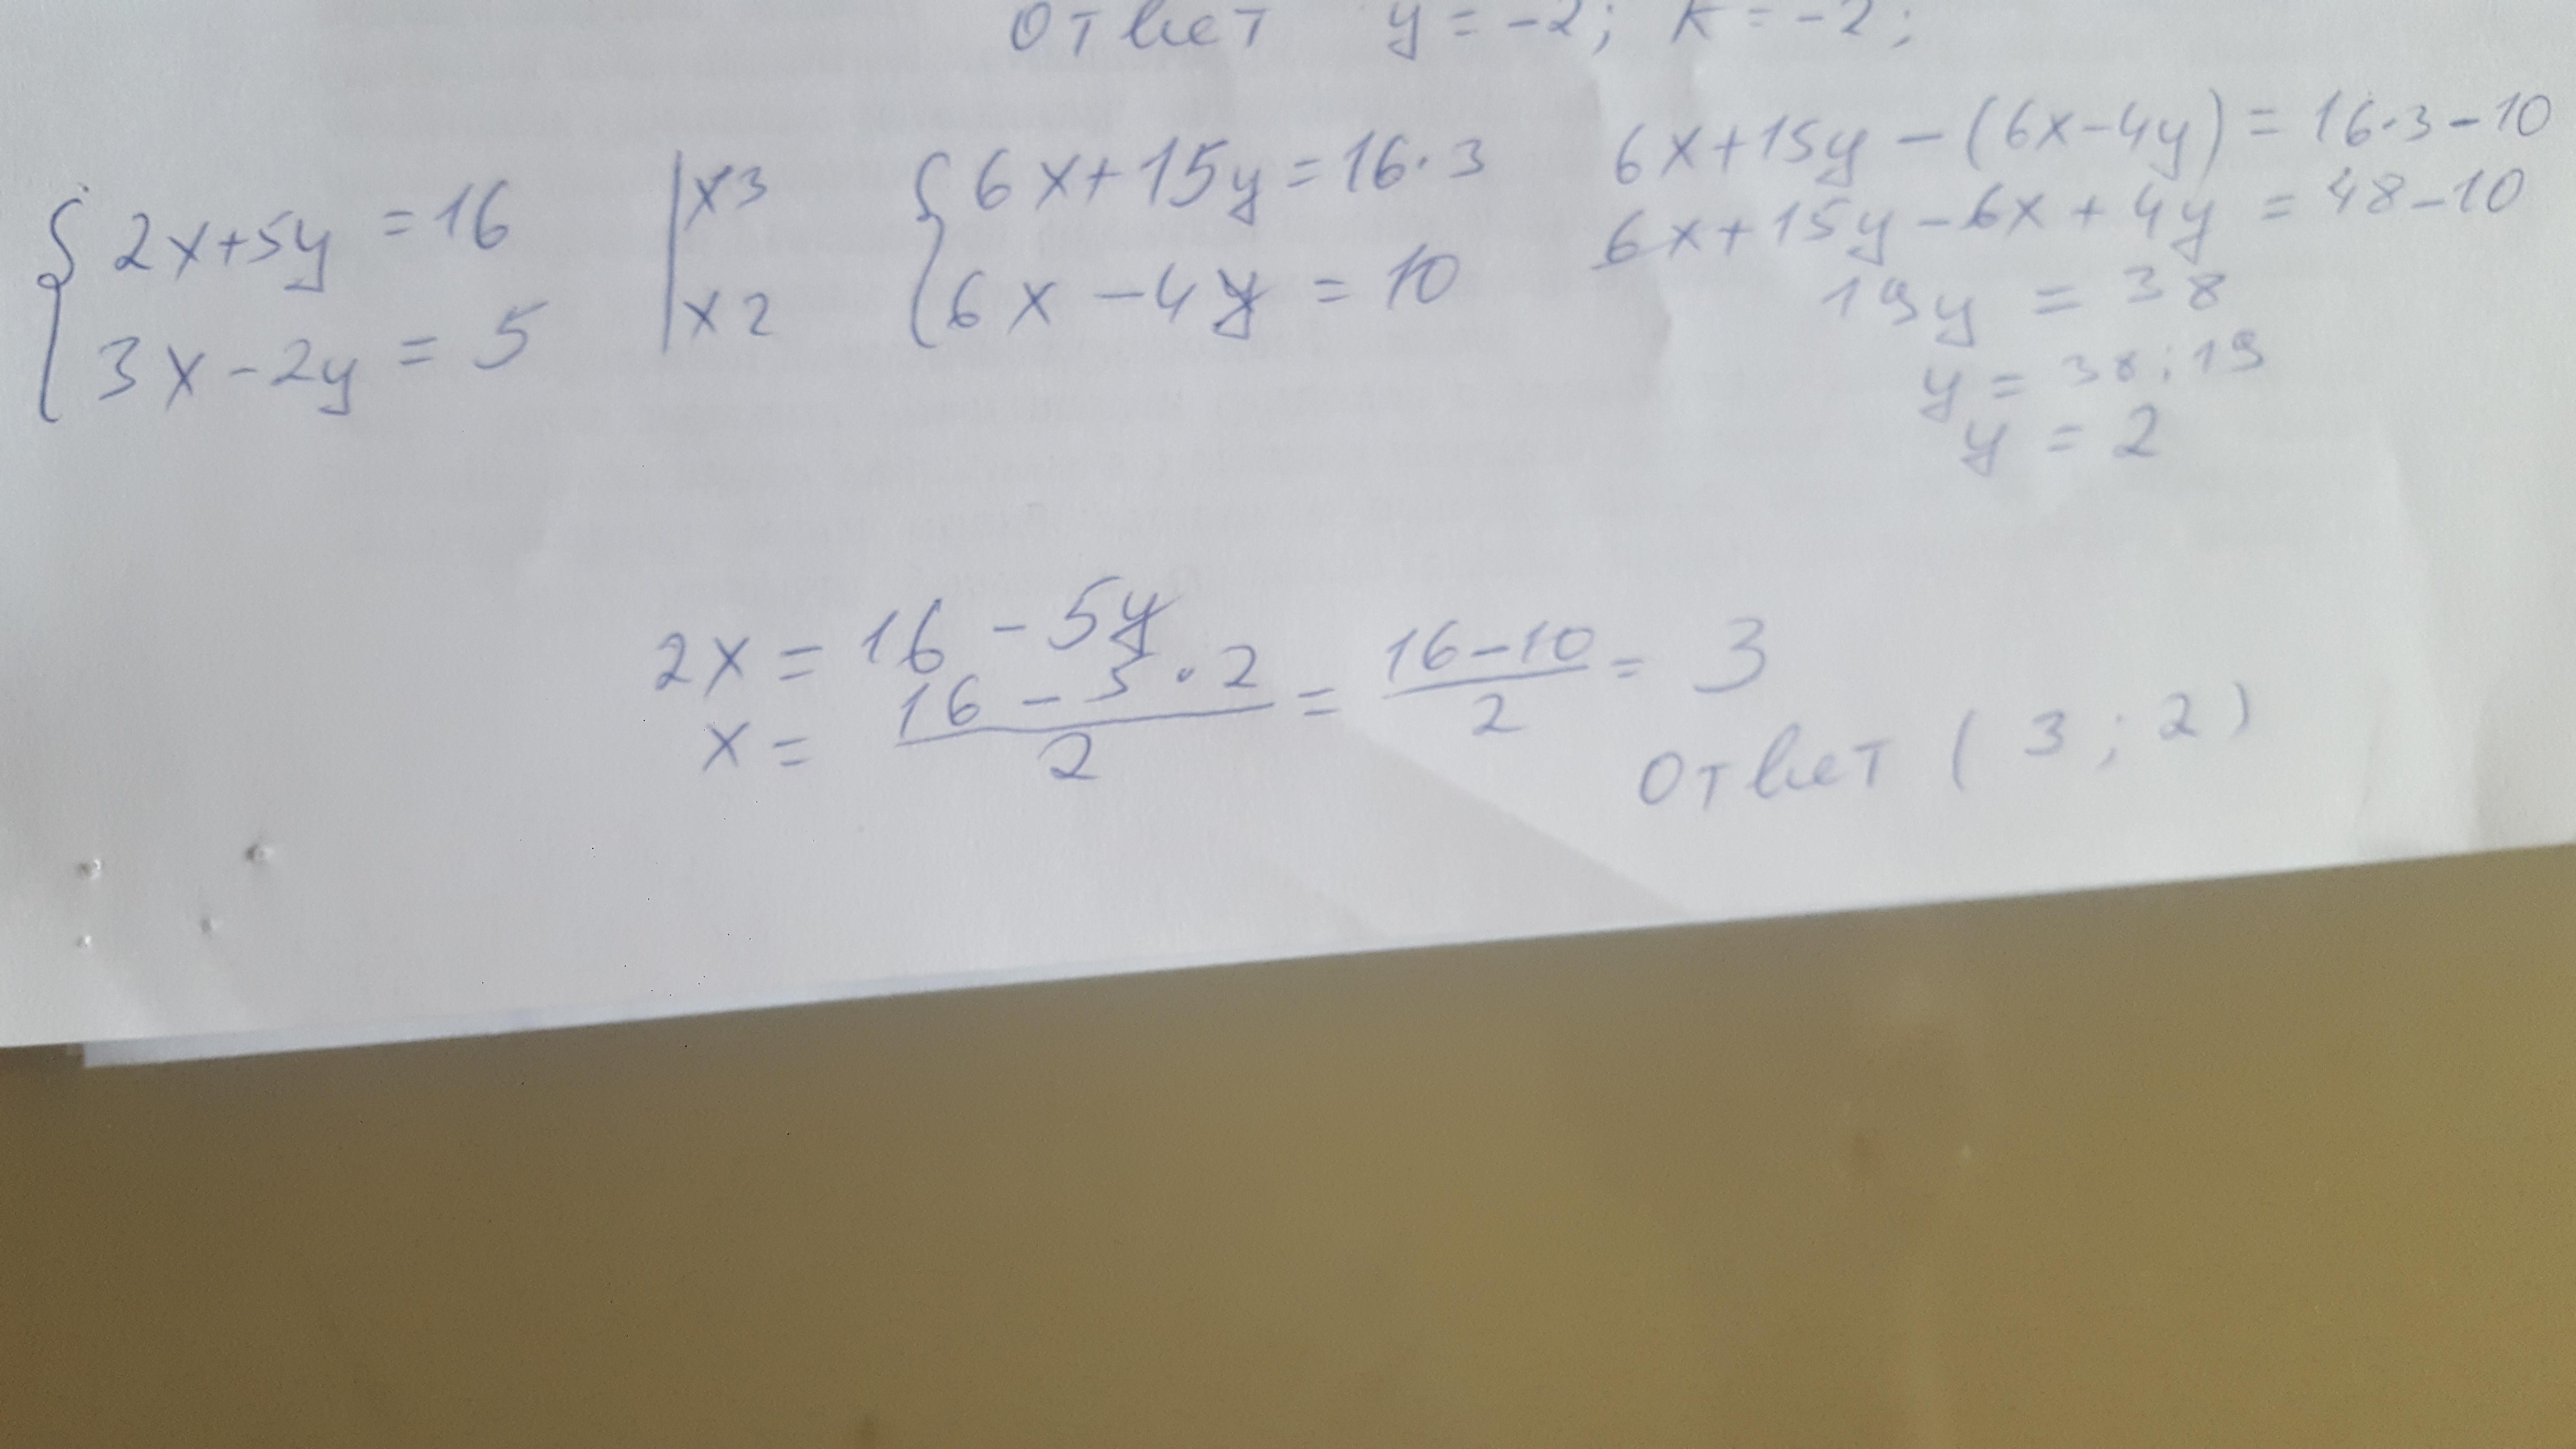 Ответ y = -2; k = -2;
{ 2x+5y = 16 | x3
{ 3x-2y = 5 | x2
{ 6x+15y = 16·3
{ 6x-4y = 10
6x+15y-(6x-4y) = 16·3-10
6x+15y-6x+4y = 48-10
19y = 38
y = 38:19
y = 2
2x = 16-5y
x = (16-5·2)/2 = (16-10)/2 = 3
Ответ (3;2)